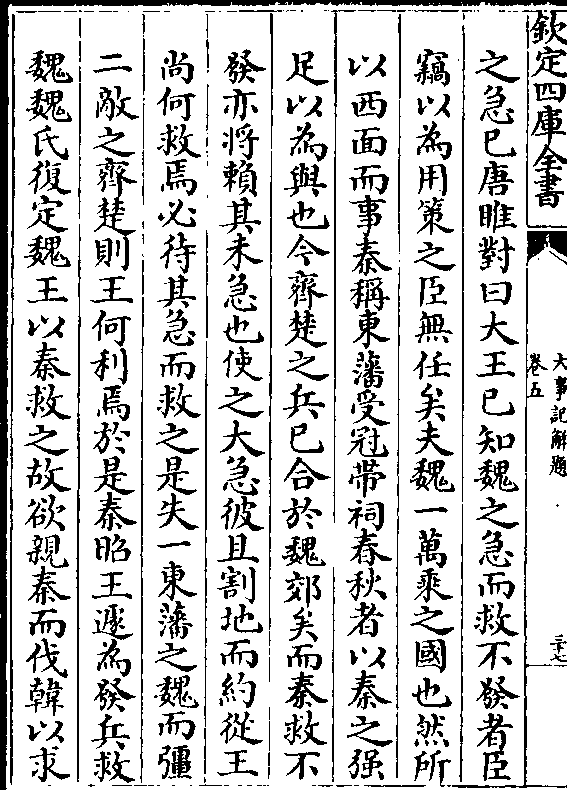 欽定四庫全書
大事記解題
卷五
三十七
之急已唐睢對曰大王已知魏之急而救不發者臣
竊以為用策之臣無任矣夫魏一萬乘之國也然所
以西面而事秦稱東藩受冠帶祠春秋者以秦之强
足以為與也今齊楚之兵已合於魏郊矣而秦救不
發亦將賴其未急也使之大急彼且割地而約從王
尚何救焉必待其急而救之是失一東藩之魏而彊
二敵之齊楚則王何利焉於是秦昭王遽為發兵救
魏魏氏復定魏王以秦救之故欲親秦而伐韓以求